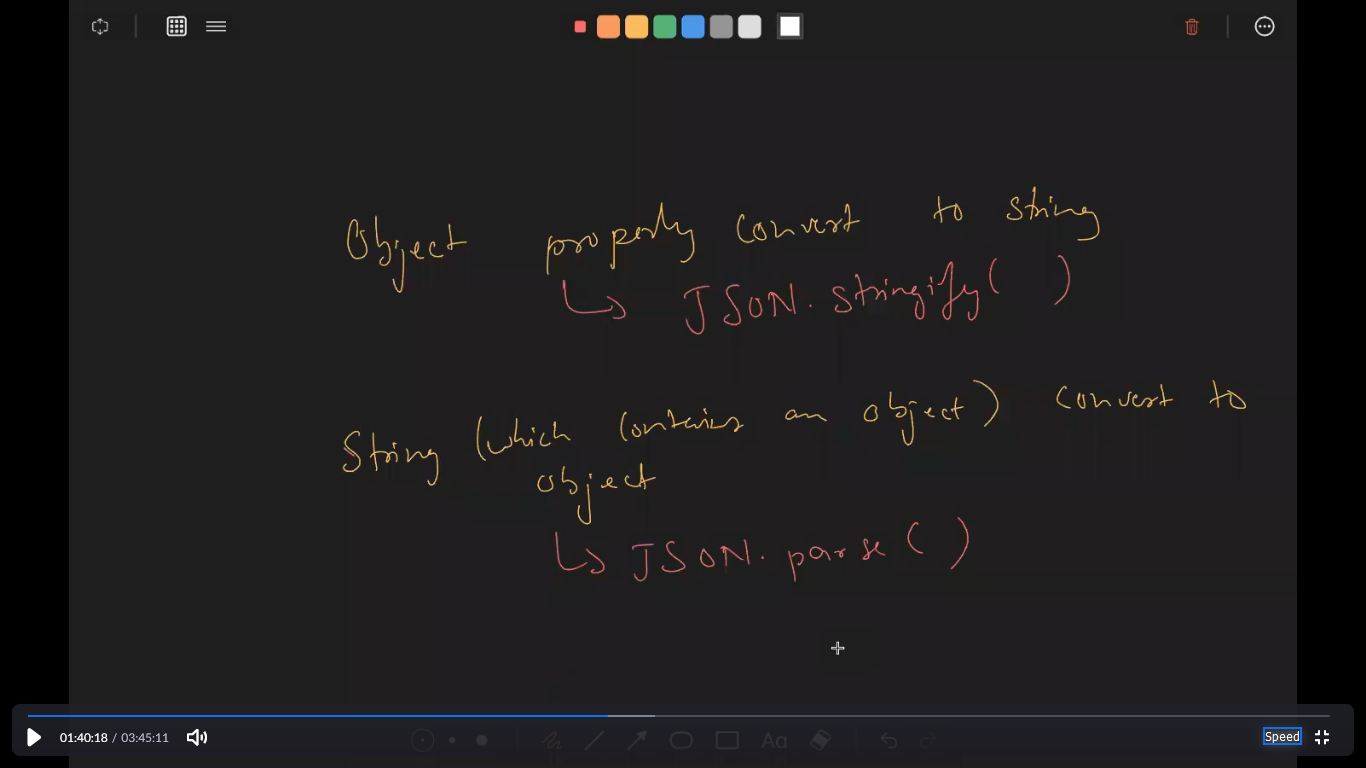 Object properly convert to string
↳ JSON.stringify( )
String (which contains an object) convert to
object
↳ JSON.parse( )
01:40:18 / 03:45:11
Speed
Aa